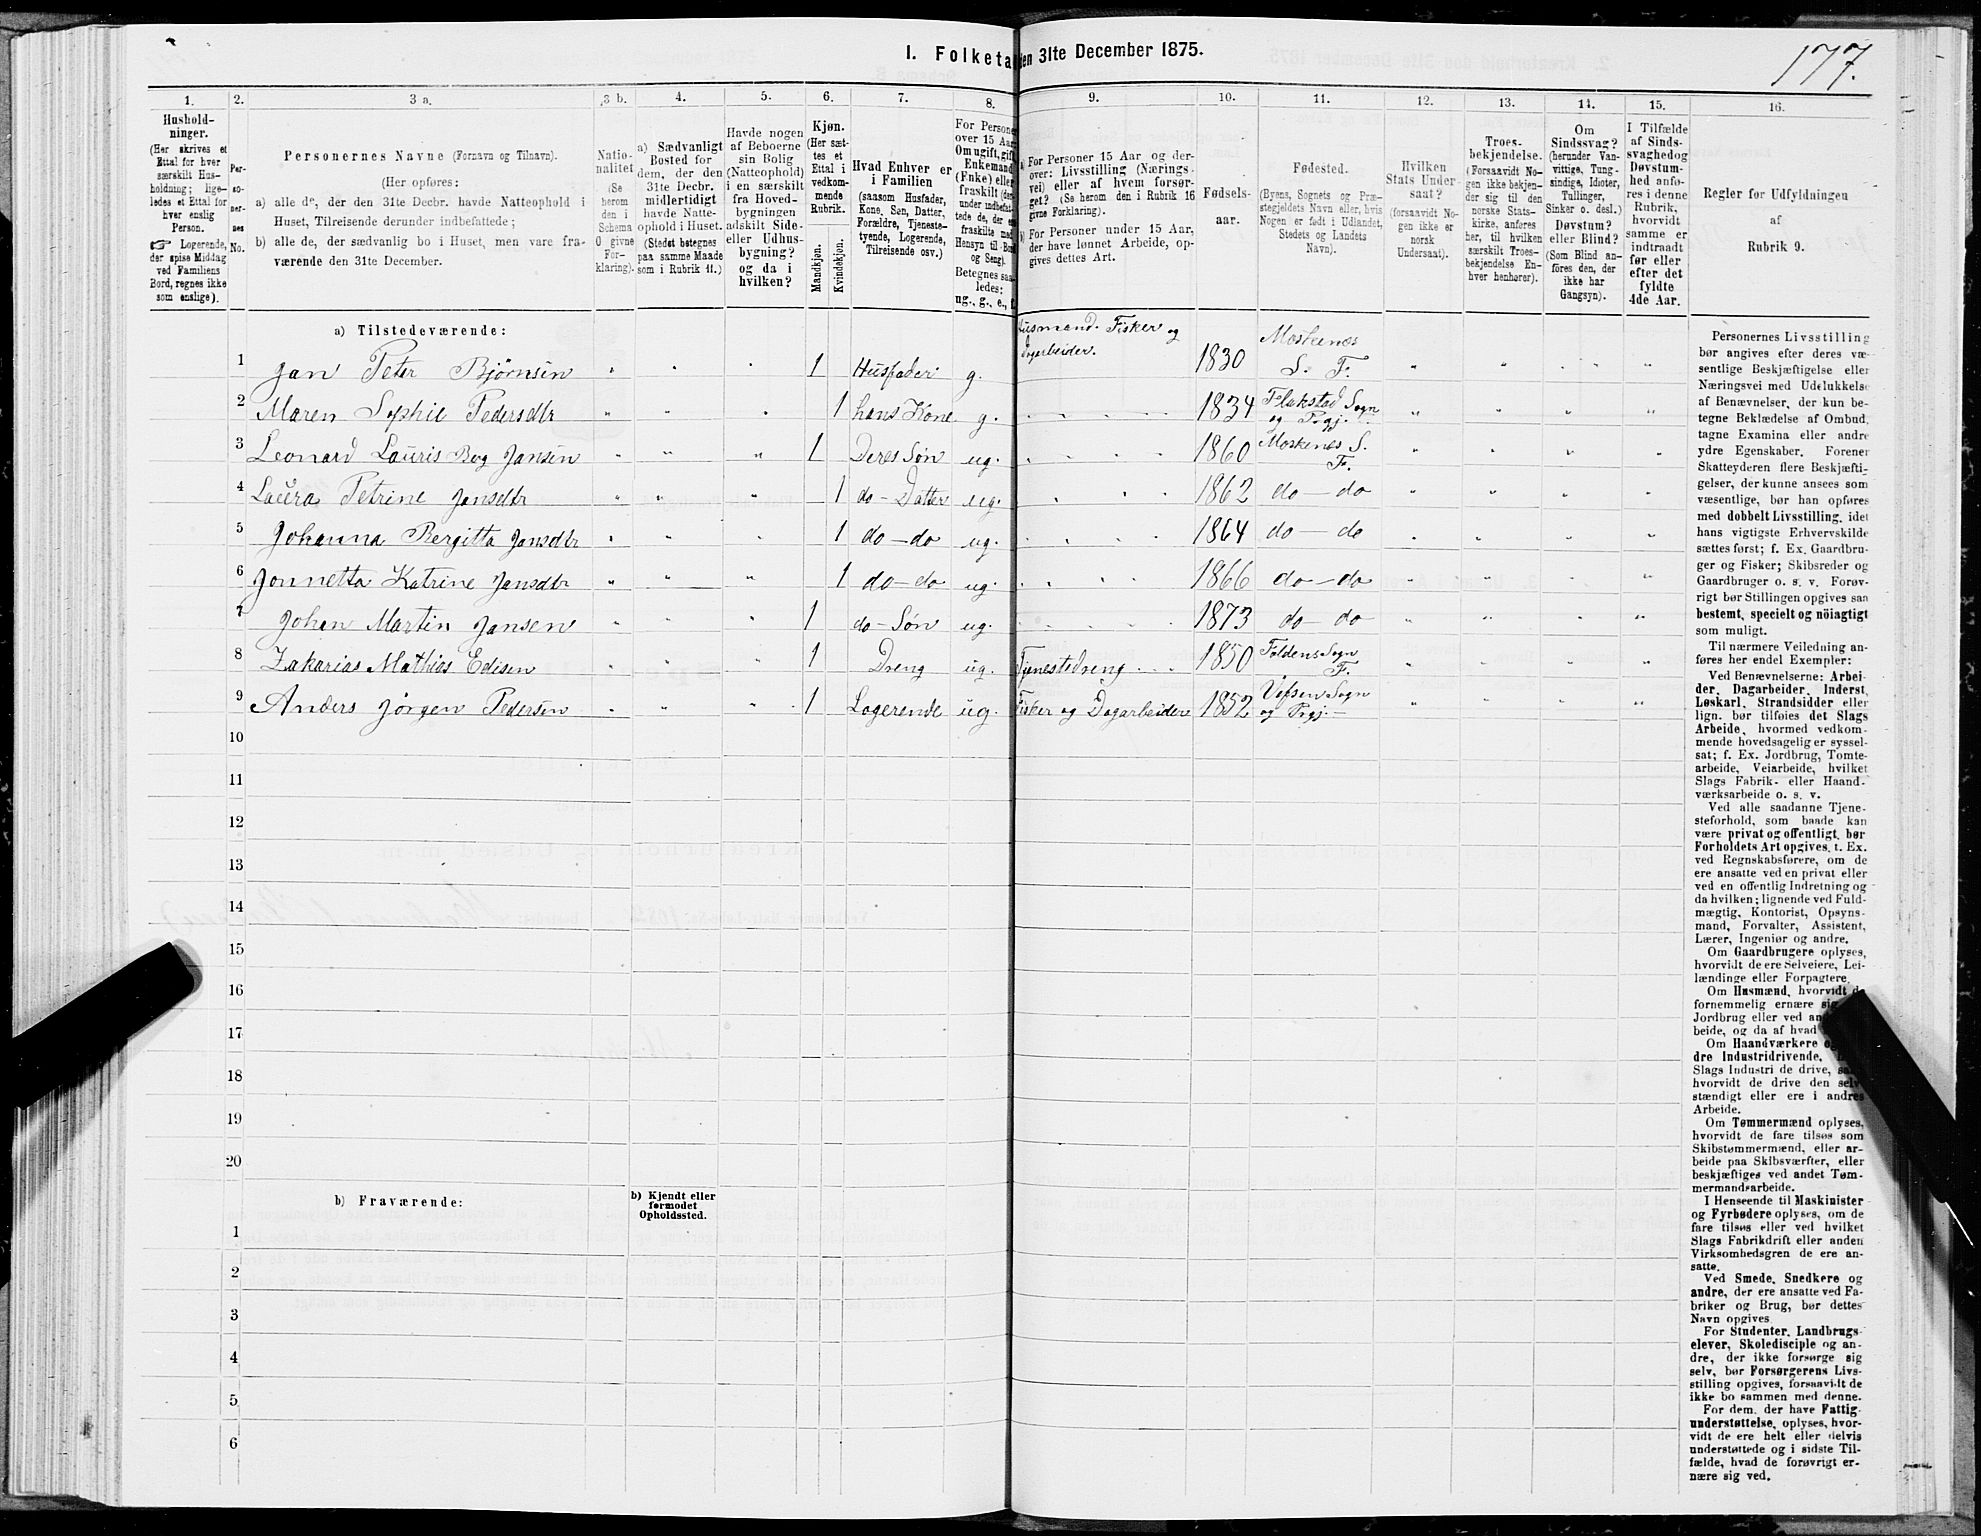 I. Folketa den 31te December 1875.
177.
1. 2. 3 a. 3 b. 4. 5. 6. 7. 8. 9. 10. 11. 12. 13. 14. 15. 16.
Hushold-
ninger.
(Her skrives et
Ettal for hver
særskilt Hus-
holdning; lige-
ledes et Ettal for
hver enslig
Person.
☞ Logerende,
der spise Middag
ved Familiens
Bord, regnes ikke
som enslige).
Per-
so-
ner-
nes
No.
Personernes Navne (Fornavn og Tilnavn).
(Her opføres:
a) alle de, der den 31te Decbr. havde Natteophold i
Huset, Tilreisende derunder indbefattede;
b) alle de, der sædvanlig bo i Huset, men vare fra-
værende den 31te December.
Natio-
nalitet
(Se
herom
den i
Schema
O givne
For-
klaring).
a) Sædvanligt
Bosted for
dem, der den
31te Decbr.
midlertidigt
havde Natte-
ophold i Huset.
(Stedet betegnes
paa samme Maade
som i Rubrik 11.)
Havde nogen
af Beboerne
sin Bolig
(Natteophold)
i en særskilt
fra Hoved-
bygningen
adskilt Side-
eller Udhus-
bygning?
og da i
hvilken?
Kjøn.
(Her sæt-
tes et
Ettal i
vedkom-
mende
Rubrik.
Mandkjøn.
Kvindekjøn.
Hvad Enhver er
i Familien
(saasom Husfader,
Kone, Søn, Datter,
Forældre, Tjeneste-
tyende, Logerende,
Tilreisende osv.)
For Persone
over 15 Aar
Om ugift, gift,
Enkemand
(Enke) eller
fraskilt (der-
under indbefat-
tede de, der er
fraskilte med
Hensyn til Bord
og Seng).
Betegnes saa-
ledes:
ug., g., e., f.
a) For Personer 15 Aar og der-
over: Livsstilling (Nærings-
vei) eller af hvem forsør-
get? (Se herom den i Rubrik 16
givne Forklaring).
b) For Personer under 15 Aar,
der have lønnet Arbeide, op-
gives dettes Art.
Fødsels-
aar.
Fødested.
(Byens, Sognets og Præ-
stegjeldets Navn eller, hvis
Nogen er født i Udlandet,
Stedets og Landets
Navn).
Hvilken
Stats Under-
saat?
(forsaavidt No-
gen ikke er
norsk
Undersaat).
Troes-
bekjendelse.
(Forsaavidt No-
gen ikke bekjen-
der sig til den
norske Stats-
kirke, anføres
her, til hvilken
særskilt Troes-
bekjendelse En-
hver henhører).
Om
Sindssvag?
(herunder Van-
vittige, Tung-
sindige, Idioter,
Tullinger,
Sinker o. desl.)
Døvstum?
eller Blind?
(Som Blind an-
føres den, der
ikke har
Gangsyn).
I Tilfælde
af Sinds-
svaghed og
Døvstum-
hed anfø-
res i denne
Rubrik,
hvorvidt
samme er
indtraadt
før eller
efter det
fyldte
4de Aar.
Regler for Udfyldningen
af
Rubrik 9.
a) Tilstedeværende:
1 Jan Peter Bjørnsen " " " 1 Husfader g. Husmand. Fisker og Dagarbeider. 1830 Moskenes S. F. " " " "
2 Maren Sophie Pedersdtr " " " 1 hans Kone g. " " " " 1834 Flakstad Sogn og Prgj. " " " "
3 Leonard Lauris Berg Jansen " " " 1 Deres Søn ug. " " " " 1860 Moskenes S. F. " " " "
4 Laura Petrine Jansdtr " " " 1 do - Datter ug. " " " " 1862 do - do " " " "
5 Johanna Bergitta Jansdtr " " " 1 do - do ug. " " " " 1864 do - do " " " "
6 Jonnetta Katrine Jansdtr " " " 1 do - do ug. " " " " 1866 do - do " " " "
7 Johan Martin Jansen " " " 1 do - Søn ug. " " " " 1873 do - do " " " "
8 Zakarias Mathias Edisen " " " 1 Dreng ug. Tjenestedreng 1850 Foldens Sogn F. " " " "
9 Anders Jørgen Pedersen " " " 1 Logerende ug. Fisker og Dagarbeider 1852 Vefsen Sogn og Prgj. " " " "
10
11
12
13
14
15
16
17
18
19
20
b) Fraværende:
b) Kjendt eller
formodet
Opholdssted.
1
2
3
4
5
6
Personernes Livsstilling
bør angives efter deres væ-
sentlige Beskjæftigelse eller
Næringsvei med Udelukkelse
af Benævnelser, der kun be-
tegne Beklædelse af Ombud,
tagne Examina eller andre
ydre Egenskaber. Forener
Skatteyderen flere Beskjæfti-
gelser, der kunne ansees som
væsentlige, bør han opføres
med dobbelt Livsstilling, idet
hans vigtigste Erhvervskilde
sættes først; f. Ex. Gaardbru-
ger og Fisker; Skibsreder og
Gaardbruger o. s. v. Forøv-
rigt bør Stillingen opgives saa
bestemt, specielt og nöiagtigt
som muligt.
Til nærmere Veiledning an-
føres her endel Exempler:
Ved Benævnelserne: Arbei-
der, Dagarbeider, Inderst,
Løskarl, Strandsidder eller
lign. bør tilføies det Slags
Arbeide, hvormed vedkom-
mende hovedsagelig er syssel-
sat; f. Ex. Jordbrug, Tomte-
arbeide, Veiarbeide, hvilket
Slags Fabrik- eller Haand-
værksarbeide o. s. v.
Ved alle saadanne Tjene-
steforhold, som baade kan
være privat og offentligt, bør
Forholdets Art opgives, t. Ex.
ved Regnskabsførere, om de
ere ansatte ved en privat eller
ved en offentlig Indretning og
da hvilken; lignende ved Fuld-
mægtig, Kontorist, Opsyns-
mand, Forvalter, Assistent,
Lærer, Ingeniør og andre.
Om Gaardbrugere oplyses,
hvorvidt de ere Selveiere, Lei-
lændinge eller Forpagtere.
Om Husmænd, hvorvidt d
fornemmelig ernære sig
Jordbrug eller ved an
beide, og da af hvad
Om Haandværkere o
dre Industridrivende,
Slags Industri de drive, sa
hvorvidt de drive den selv-
stændigt eller ere i andres
Arbeide.
Om Tømmermænd oplyses,
hvorvidt de fare tilsøs som
Skibstømmermænd, eller ar-
beide paa Skibsværfter, eller
beskjæftiges ved andet Tøm-
mermandsarbeide.
I Henseende til Maskinister
og Fyrbødere oplyses, om de
fare tilsøs eller ved hvilket
Slags Fabrikdrift eller anden
Virksomhedsgren de ere an-
satte.
Ved Smede, Snedkere og
andre, der ere ansatte ved Fa-
briker og Brug, bør dettes
Navn opgives
For Studenter, Landbrugs-
elever, Skoledisciple og an-
dre, der ikke forsørge sig
selv, bør Forsørgerens Livs-
stilling opgives, forsaavidt de
ikke bo sammen med denne.
For dem, der have Fattig-
understøttelse, oplyses, hvor-
vidt de ere helt eller delvis
understøttede og i sidste Til-
fælde, hvad de forøvrigt er-
nære sig ved.